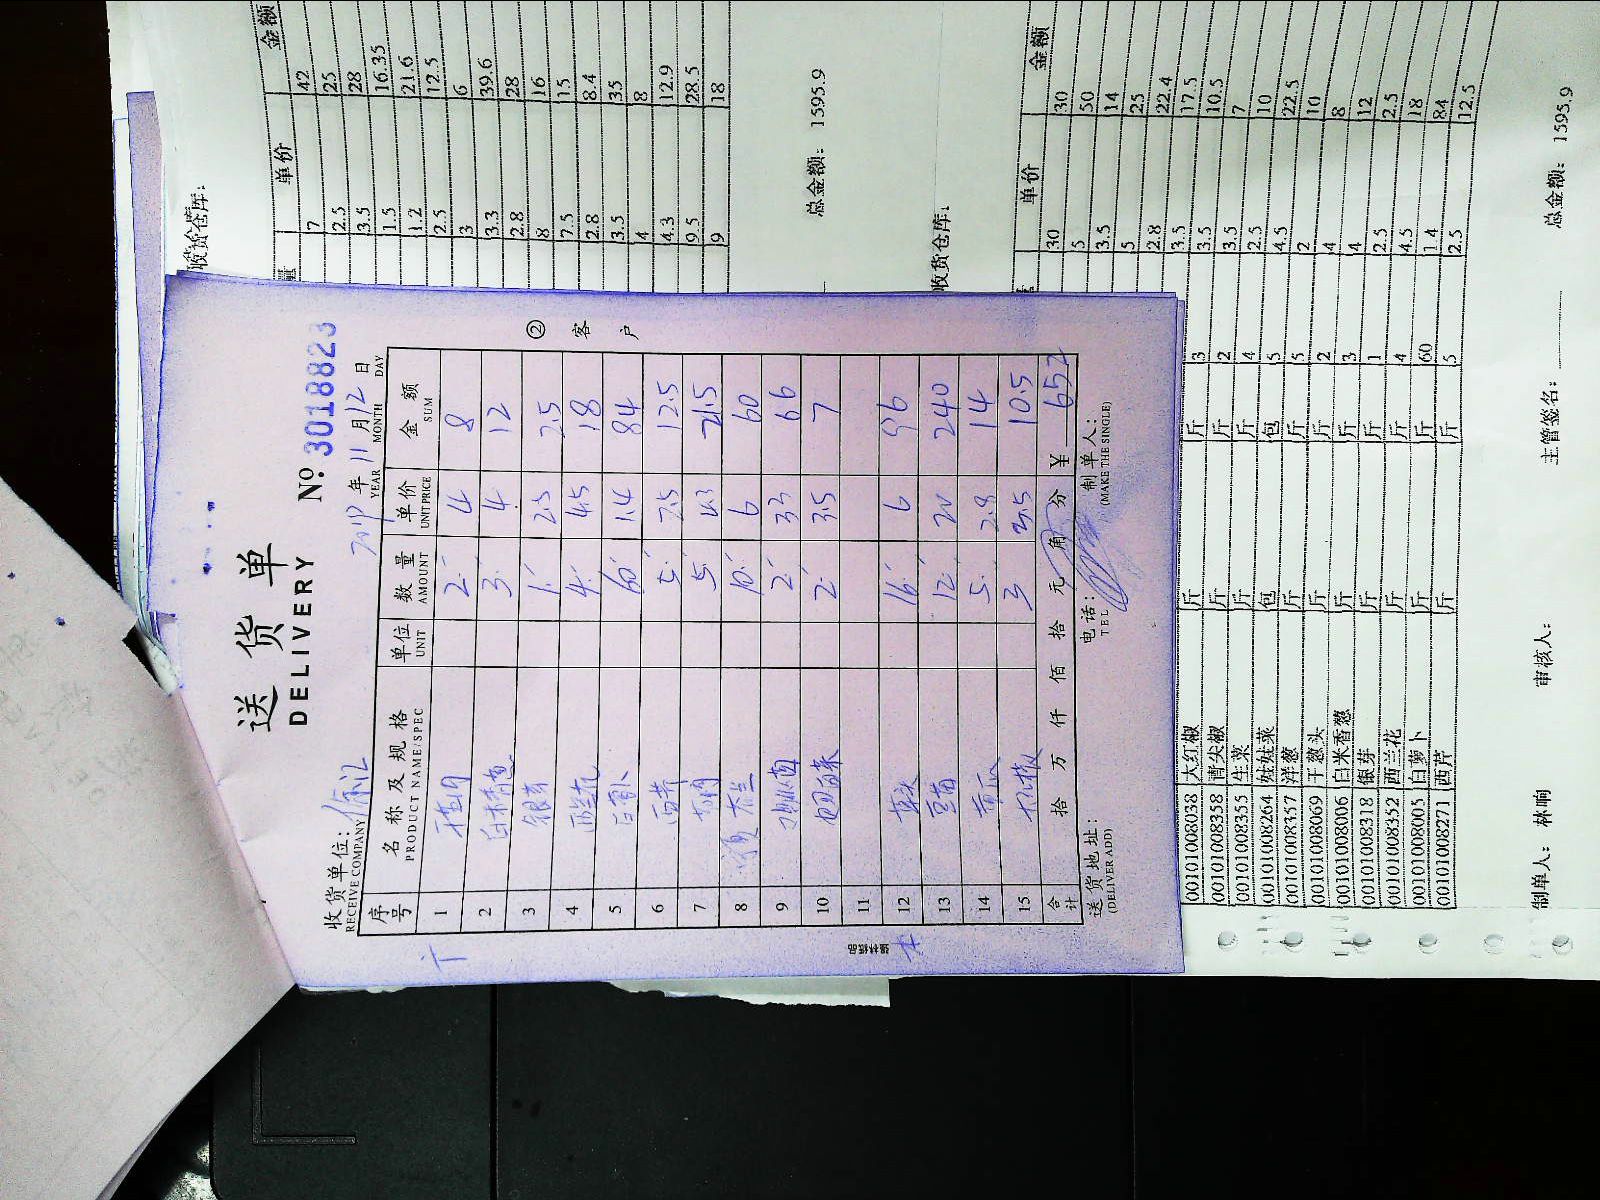 送货单
DELIVERY
No. 3018823
收货单位:
RECEIVE COMPANY
年 11 月 12 日
YEAR MONTH DAY
序号 名称及规格 单位 数量 单价 金额
PRODUCT NAME/SPEC UNIT AMOUNT UNIT PRICE SUM
1 2 4 8
2 白米香葱 3 4 12
3 银芽 1 2.5 2.5
4 西兰花 4 4.5 18
5 白萝卜 60 1.4 84
6 西芹 5 2.5 12.5
7 5 4.3 21.5
8 10 6 60
9 2 33 66
10 2 3.5 7
11
12 16 6 96
13 12 20 240
14 黄瓜 5 2.8 14
15 3 3.5 10.5
合计 拾 万 仟 佰 拾 元 角 分 ¥ 652
送货地址: 电话: 制单人:
(DELIVER ADD) TEL (MAKE THE SINGLE)
② 客户
收货仓库:
量 单价 金额
7 42
2.5 25
3.5 28
1.5 16.35
1.2 21.6
2.5 12.5
3 6
3.3 39.6
2.8 28
8 16
7.5 15
2.8 8.4
3.5 35
4 8
4.3 12.9
9.5 28.5
9 18
总金额: 1595.9
收货仓库:
单价 金额
30 30
5 50
3.5 14
5 25
2.8 22.4
3.5 17.5
00101008038 大红椒 斤 斤 3 3.5 10.5
00101008358 青尖椒 斤 斤 2 3.5 7
00101008355 生菜 斤 斤 4 2.5 10
00101008264 娃娃菜 包 包 5 4.5 22.5
00101008357 洋葱 斤 斤 5 2 10
00101008069 干葱头 斤 斤 2 4 8
00101008006 白米香葱 斤 斤 3 4 12
00101008318 银芽 斤 斤 1 2.5 2.5
00101008352 西兰花 斤 斤 4 4.5 18
00101008005 白萝卜 斤 斤 60 1.4 84
00101008271 西芹 斤 斤 5 2.5 12.5
制单人: 林响 审核人: 主管签名: 总金额: 1595.9